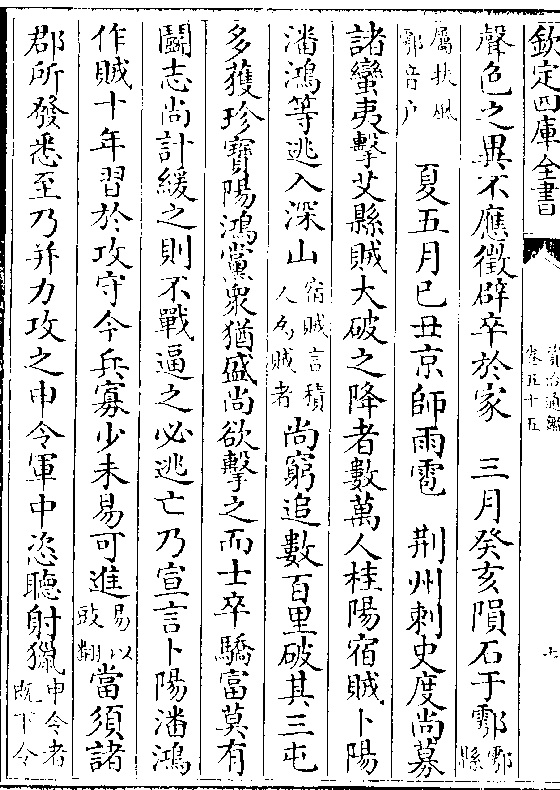 欽定四庫全書
資治通鑑
卷五十五
聲色之異不應徵辟卒於家　三月癸亥隕石于鄠鄠縣
屬扶風鄠音户　夏五月己丑京師雨雹　荆州刺史度尚募
諸蠻夷擊艾縣賊大破之降者數萬人桂陽宿賊卜陽
潘鴻等逃入深山宿賊言積人為賊者尚窮追數百里破其三屯
多獲珍寶陽鴻黨衆猶盛尚欲擊之而士卒驕富莫有
鬭志尚計緩之則不戰逼之必逃亡乃宣言卜陽潘鴻
作賊十年習於攻守今兵寡少未易可進易以豉翻當須諸
郡所發悉至乃并力攻之申令軍中恣聽射獵申令者既下令